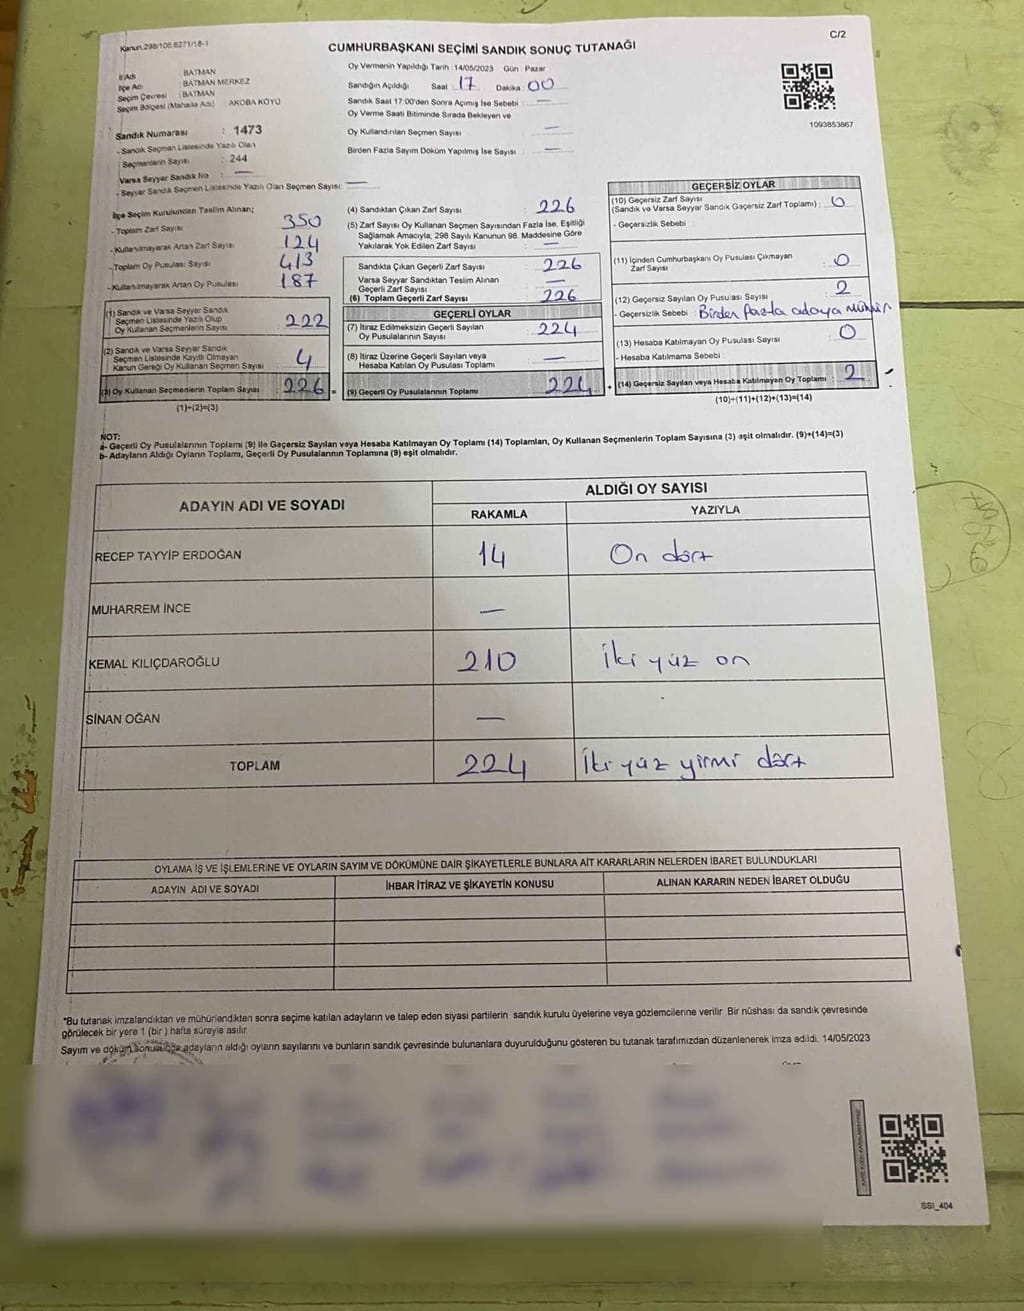 Kanun.298/105.6271/18-1
C/2
CUMHURBAŞKANI SEÇİMİ SANDIK SONUÇ TUTANAĞI
İl Adı BATMAN
İlçe Adı BATMAN MERKEZ
Seçim Çevresi : BATMAN
Seçim Bölgesi (Mahalle Adı) AKOBA KÖYÜ
Oy Vermenin Yapıldığı Tarih : 14/05/2023 Gün : Pazar
Sandığın Açıldığı Saat 17 Dakika 00
Sandık Saat 17:00'den Sonra Açılmış İse Sebebi : —
Oy Verme Saati Bitiminde Sırada Bekleyen ve
Oy Kullandırılan Seçmen Sayısı —
Birden Fazla Sayım Döküm Yapılmış İse Sayısı : —
1093853867
Sandık Numarası : 1473
- Sandık Seçmen Listesinde Yazılı Olan
Seçmenlerin Sayısı : 244
Varsa Seyyar Sandık No : —
- Seyyar Sandık Seçmen Listesinde Yazılı Olan Seçmen Sayısı: —
İlçe Seçim Kurulundan Teslim Alınan;
- Toplam Zarf Sayısı 350
- Kullanılmayarak Artan Zarf Sayısı 124
- Toplam Oy Pusulası Sayısı 413
- Kullanılmayarak Artan Oy Pusulası 187
(1) Sandık ve Varsa Seyyar Sandık
Seçmen Listesinde Yazılı Olup
Oy Kullanan Seçmenlerin Sayısı : 222
(2) Sandık ve Varsa Seyyar Sandık
Seçmen Listesinde Kayıtlı Olmayan
Kanun Gereği Oy Kullanan Seçmen Sayısı 4
(3) Oy Kullanan Seçmenlerin Toplam Sayısı : 226 =
(1)+(2)=(3)
(4) Sandıktan Çıkan Zarf Sayısı : 226
(5) Zarf Sayısı Oy Kullanan Seçmen Sayısından Fazla İse, Eşitliği
Sağlamak Amacıyla; 298 Sayılı Kanunun 98. Maddesine Göre
Yakılarak Yok Edilen Zarf Sayısı : —
Sandıkta Çıkan Geçerli Zarf Sayısı : 226
Varsa Seyyar Sandıktan Teslim Alınan
Geçerli Zarf Sayısı —
(6) Toplam Geçerli Zarf Sayısı : 226
GEÇERLİ OYLAR
(7) İtiraz Edilmeksizin Geçerli Sayılan
Oy Pusulalarının Sayısı : 224
(8) İtiraz Üzerine Geçerli Sayılan veya
Hesaba Katılan Oy Pusulası Toplamı : —
(9) Geçerli Oy Pusulalarının Toplamı : 224 +
GEÇERSİZ OYLAR
(10) Geçersiz Zarf Sayısı
(Sandık ve Varsa Seyyar Sandık Geçersiz Zarf Toplamı) : 0
- Geçersizlik Sebebi
(11) İçinden Cumhurbaşkanı Oy Pusulası Çıkmayan
Zarf Sayısı : 0
(12) Geçersiz Sayılan Oy Pusulası Sayısı : 2
- Geçersizlik Sebebi : Birden fazla adaya mühür
(13) Hesaba Katılmayan Oy Pusulası Sayısı : 0
- Hesaba Katılmama Sebebi :
(14) Geçersiz Sayılan veya Hesaba Katılmayan Oy Toplamı : 2
(10)+(11)+(12)+(13)=(14)
NOT:
a- Geçerli Oy Pusulalarının Toplamı (9) ile Geçersiz Sayılan veya Hesaba Katılmayan Oy Toplamı (14) Toplamları, Oy Kullanan Seçmenlerin Toplam Sayısına (3) eşit olmalıdır. (9)+(14)=(3)
b- Adayların Aldığı Oyların Toplamı, Geçerli Oy Pusulalarının Toplamına (9) eşit olmalıdır.
ADAYIN ADI VE SOYADI
ALDIĞI OY SAYISI
RAKAMLA YAZIYLA
RECEP TAYYİP ERDOĞAN 14 On dört
MUHARREM İNCE —
KEMAL KILIÇDAROĞLU 210 İki yüz on
SİNAN OĞAN —
TOPLAM 224 İki yüz yirmi dört
OYLAMA İŞ VE İŞLEMLERİNE VE OYLARIN SAYIM VE DÖKÜMÜNE DAİR ŞİKAYETLERLE BUNLARA AİT KARARLARIN NELERDEN İBARET BULUNDUKLARI
ADAYIN ADI VE SOYADI İHBAR İTİRAZ VE ŞİKAYETİN KONUSU ALINAN KARARIN NEDEN İBARET OLDUĞU
*Bu tutanak imzalandıktan ve mühürlendikten sonra seçime katılan adayların ve talep eden siyasi partilerin sandık kurulu üyelerine veya gözlemcilerine verilir. Bir nüshası da sandık çevresinde
görülecek bir yere 1 (bir ) hafta süreyle asılır.
Sayım ve döküm sonucunda adayların aldığı oyların sayılarını ve bunların sandık çevresinde bulunanlara duyurulduğunu gösteren bu tutanak tarafımızdan düzenlenerek imza edildi. 14/05/2023
SSI_404